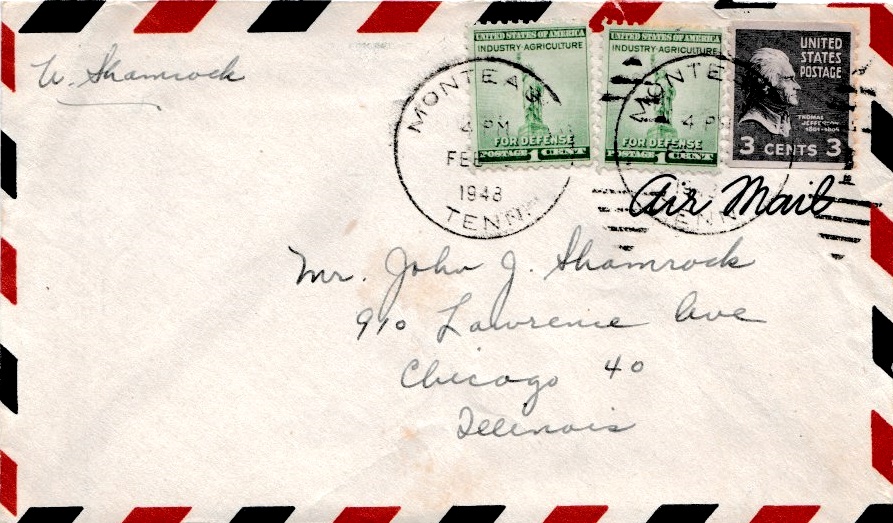 W. Shamrock
UNITED STATES OF AMERICA
INDUSTRY·AGRICULTURE
FOR DEFENSE
POSTAGE 1 CENT
UNITED STATES OF AMERICA
INDUSTRY·AGRICULTURE
FOR DEFENSE
POSTAGE 1 CENT
UNITED
STATES
POSTAGE
THOMAS
JEFFERSON
3 CENTS 3
MONTEA
4 PM
FEB
1948
TENN.
MONTE
4 PM
TENN
Air Mail
Mr. John J. Shamrock
910 Lawrence Ave
Chicago 40
Illinois